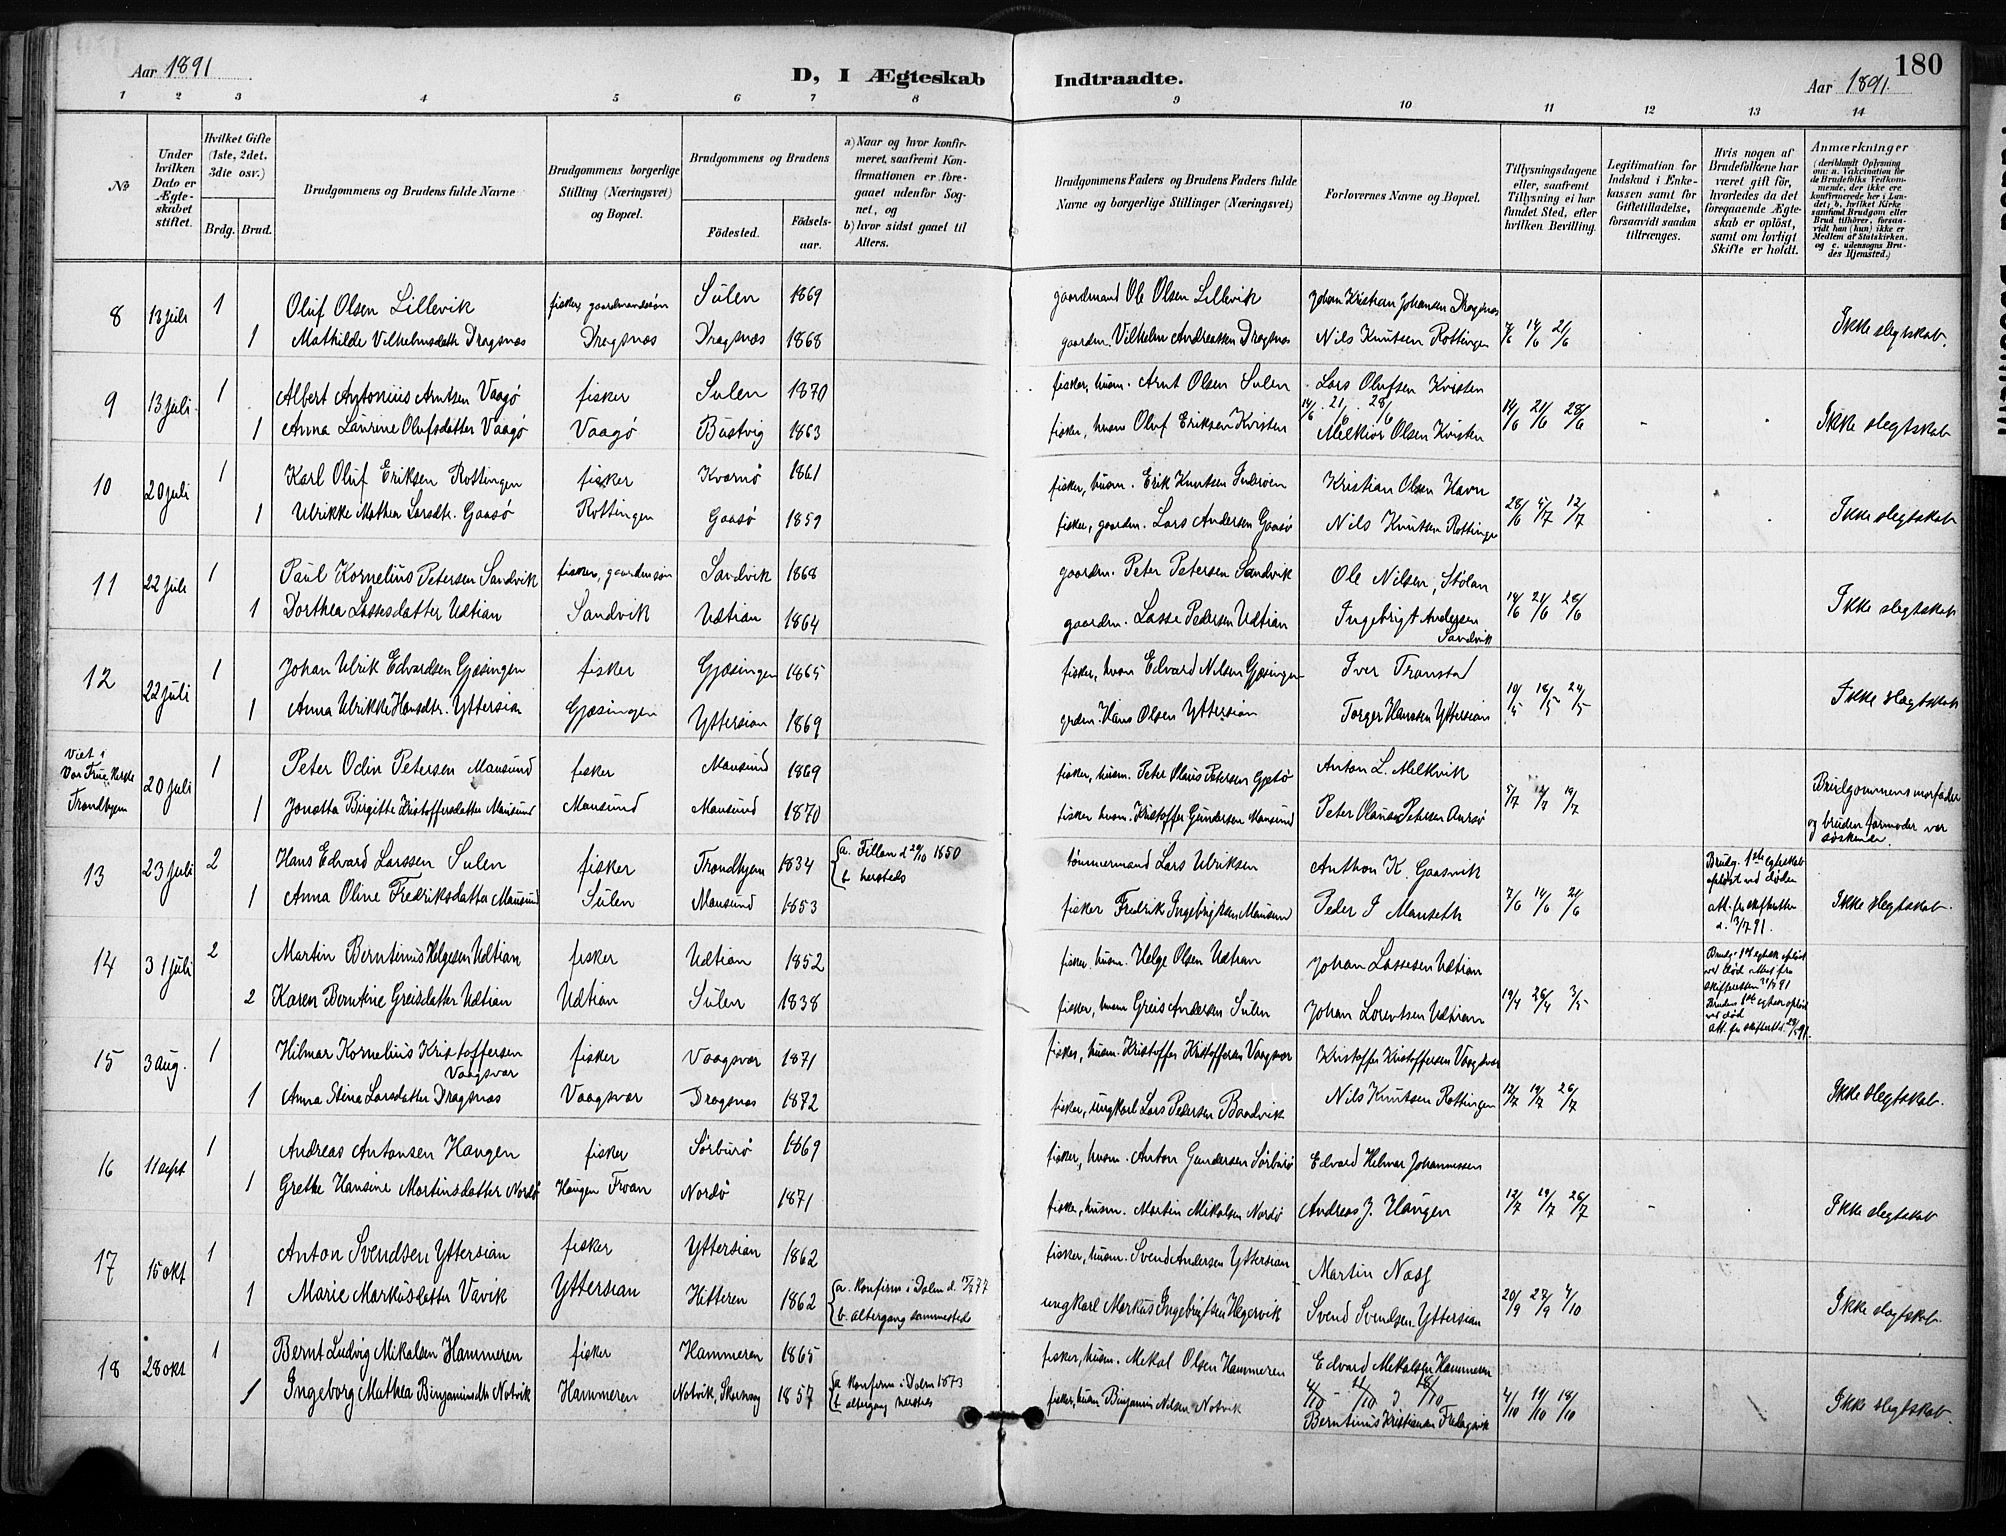 Aar 1891
D, I Ægteskab Indtraadte.
Aar 1891.
180
1 2 3 4 5 6 7 8 9 10 11 12 13 14
No
Under hvilken Dato er Ægteskabet stiftet.
Hvilket Gifte (1ste, 2det, 3die osv.)
Brdg. Brud.
Brudgommens og Brudens fulde Navne
Brudgommens borgerlige Stilling (Næringsvei) og Bopæl.
Brudgommens og Brudens
Fødested.
Fødselsaar.
a) Naar og hvor konfirmeret, saafremt Konfirmationen er foregaaet udenfor Sognet, og
b) hvor sidst gaaet til Alters.
Brudgommens Faders og Brudens Faders fulde Navne og borgerlige Stillinger (Næringsvei)
Forlovernes Navne og Bopæl.
Tillysningsdagene eller, saafremt Tillysning ei har fundet Sted, efter hvilken Bevilling.
Legitimation for Indskud i Enkekassen samt for Giftetilladelse, forsaavidt saadan tiltrænges.
Hvis nogen af Brudefolkene har været gift før, hvorledes da det foregaaende Ægteskab er opløst, samt om lovligt Skifte er holdt.
Anmærkninger
(deriblandt Oplysning om: a. Vakcination for de Brudefolks Vedkommende, der ikke ere konfirmerede her i Landet; b, hvilket Kirkesamfund Brudgom eller Brud tilhører, forsaavidt han (hun) ikke er Medlem af Statskirken, og c. udensogns Brudes Hjemsted.)
8 13 juli 1 Oluf Olsen Lillevik fisker, gaardmandssøn Sulen 1869 gaardmand Ole Olsen Lillevik Johan Kristian Johansen Dragsnæs
1 Mathilde Vilhelmsdatter Dragsnæs Dragsnæs Dragsnæs 1868 gaardm. Vilhelm Andreassen Dragsnæs Nils Knutsen Rottingen 7/6 14/6 21/6 Ikke slegtskab.
9 13 juli 1 Albert Antonius Arntsen Vaagø fisker Sulen 1870 fisker, husm. Arnt Olsen Sulen Lars Olufsen Kvisten
14/6 . 21/6 . 28/6
1 Anna Laurine Olufsdatter Vaagø Vaagø Bustvig 1863 fisker, husm Oluf Eriksen Kvisten Melkior Olsen Kvisten 14/6 21/6 28/6 Ikke slegtskab
10 20 juli 1 Karl Oluf Eriksen Rottingen fisker Kvernø 1861 fisker, husm. Erik Knutsen Inderøen Kristian Olsen Havn
1 Ulrikke Mathea Larsdtr. Gaasø Rottingen Gaasø 1859 fisker, gaardm. Lars Andersen Gaasø Nils Knutsen Rottingen 28/6 5/7 12/7 Ikke slegtskab
11 22 juli 1 Paul Kornelius Petersen Sandvik fisker, gaardmsøn Sandvik 1868 gaardm. Peter Petersen Sandvik Ole Nilsen, Stølan
1 Dorthea Lassesdatter Udtian Sandvik Udtian 1864 gaardm. Lasse Pedersen Udtian Ingebrigt Andersen Sandvik 14/6 21/6 28/6 Ikke slegtskab
12 22 juli 1 Johan Ulrik Edvardsen Gjæsingen fisker Gjæsingen 1865 fisker, husm Edvard Nilsen Gjæsingen Iver Transtad
1 Anna Ulrikke Hansdtr. Yttersian Gjæsingen Yttersian 1869 grdm. Hans Olsen Yttersian Torger Hansen Yttersian 10/5 18/5 24/5 Ikke slegtskab
Viet i Vor Frue Kirke Trondhjem 20 juli 1 Peter Odin Petersen Mausund fisker Mausund 1869 fisker, husm. Peter Olaus Petersen Anton L. Melkvik
1 Jonetta Birgitte Kristoffersdatter Mausund Mausund Mausund 1870 fisker husm. Kristoffer Gundersen Mausund Peter Olausen Petersen 5/7 12/7 19/7 Brudgommens morfader og brudens farmoder var søskende.
13 23 juli 2 Hans Edvard Larssen Sulen fisker Trondhjem 1834 a. Fillan d 20/10 1850 tømmermand Lars Ulriksen Anthon K. Gaasvik
b hersteds
Brudg. 1ste egteskab opløst ved døden att. fr skifteretten d. 3/7 91.
1 Anna Oline Fredriksdatter Mausund Sulen Mausund 1853 fisker Fredrik Ingebrigtsen Mausund Peder J Manseth 7/6 14/6 21/6 Ikke slegtskab.
14 31 juli 2 Martin Berntinus Helgesen Udtian fisker Udtian 1852 fisker husm. Helge Olsen Udtian Johan Lassesen Udtian
Brudg. 1ste egtesk opløst ved død attest fra skifteretten
2 Karen Berntine Greisdatter Udtian Udtian Sulen 1838 fisker, husm Greis Andersen Sulen Johan Lorentsen Udtian 19/4 26/4 3/5
Brudens 1ste egtesk opløst ved død att. fr skifterett
15 3 aug. 1 Hilmar Kornelius Kristoffersen Vaagsvær fisker Vaagsvær 1871 fisker, husm. Kristoffer Kristoffersen Vaagsvær Kristoffer Kristoffersen Vaagsvær
1 Anna Stina Larsdatter Dragsnæs Vaagsvær Dragsnæs 1872 fisker, ungkarl Lars Pedersen Baadvik Nils Knutsen Rottingen 12/7 19/7 26/7 Ikke slegtskab.
16 11 sept 1 Andreas Antonsen Haugen fisker Sørburø 1869 fisker, husm. Anton Gundersen Sørburø Edvard Hilmar Johannessen
1 Grethe Hansine Martinsdatter Nordø Haugen Froan Nordø 1871 fisker, husm. Martin Mikalsen Nordø Andreas J. Haugen 12/7 19/7 26/7 Ikke slegtskab
17 15 okt 1 Anton Svendsen Yttersian fisker Yttersian 1862 fisker, husm. Svend Andersen Yttersian Martin Næss
1 Marie Markusdatter Vavik Yttersian Hitteren 1862 a. konfirm i Dolm d. 77 ungkarl Markus Ingebrigtsen Hegervik Svend Svendsen Yttersian 20/9 27/9 4/10 Ikke slegtskab.
b. altergang sammesteds
18 28 okt 1 Bernt Ludvig Mikalsen Hammeren fisker Hammeren 1865 fisker, husm. Mekal Olsen Hammeren Edvard Mekalsen Hammeren
4/10 - 11/10 18/10
1 Ingeborg Mathea Binjaminsdtr Notvik Hammeren Notvik, 1857 a konfirm i Dolm 1873 fisker, husm Binjamin Nilsen Notvik Berntinus Kristiansen 4/10 11/10 18/10 Ikke slegtskab.
b altergang hersteds